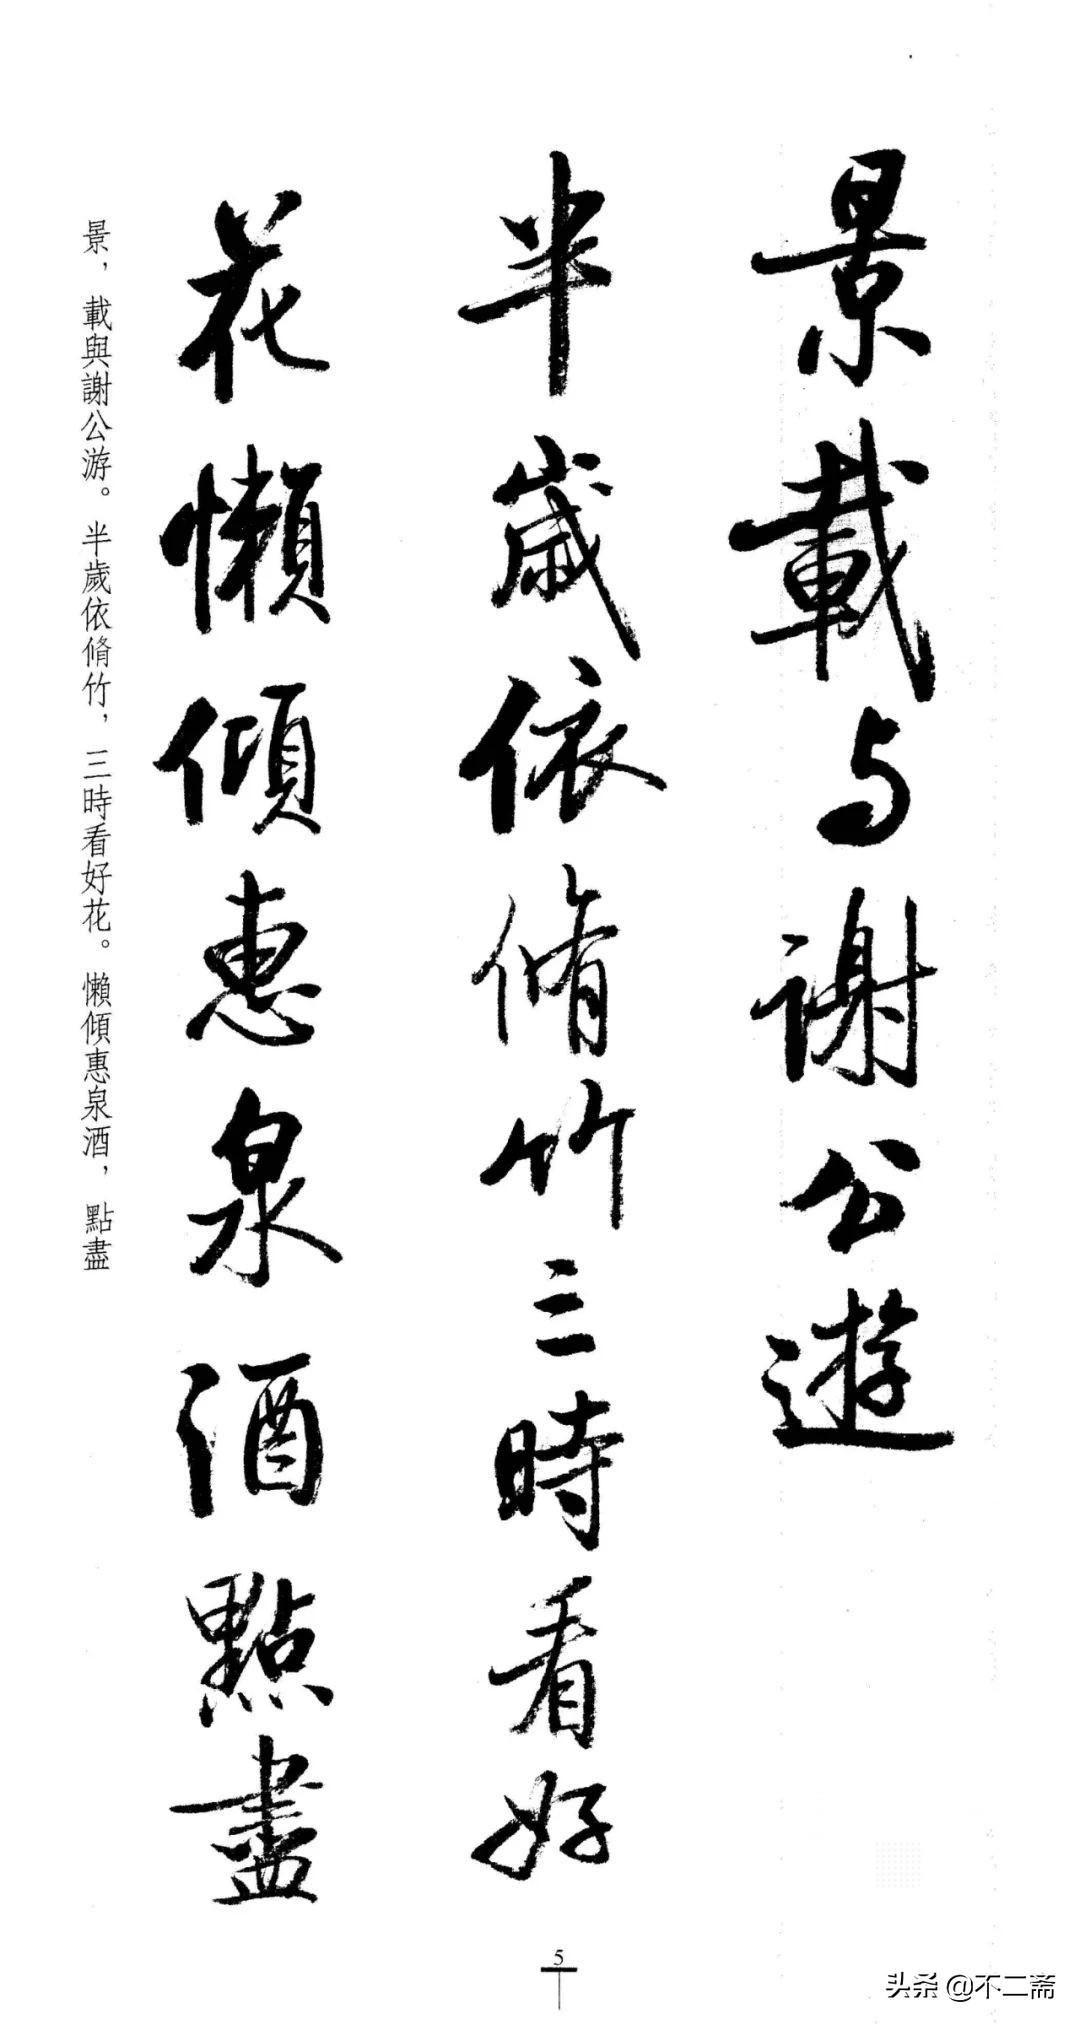 景載与謝公遊
半歲依脩竹三時看好
花懶傾惠泉酒點盡
景，載與謝公游。半歲依脩竹，三時看好花。懶傾惠泉酒，點盡
5
头条 @不二斋